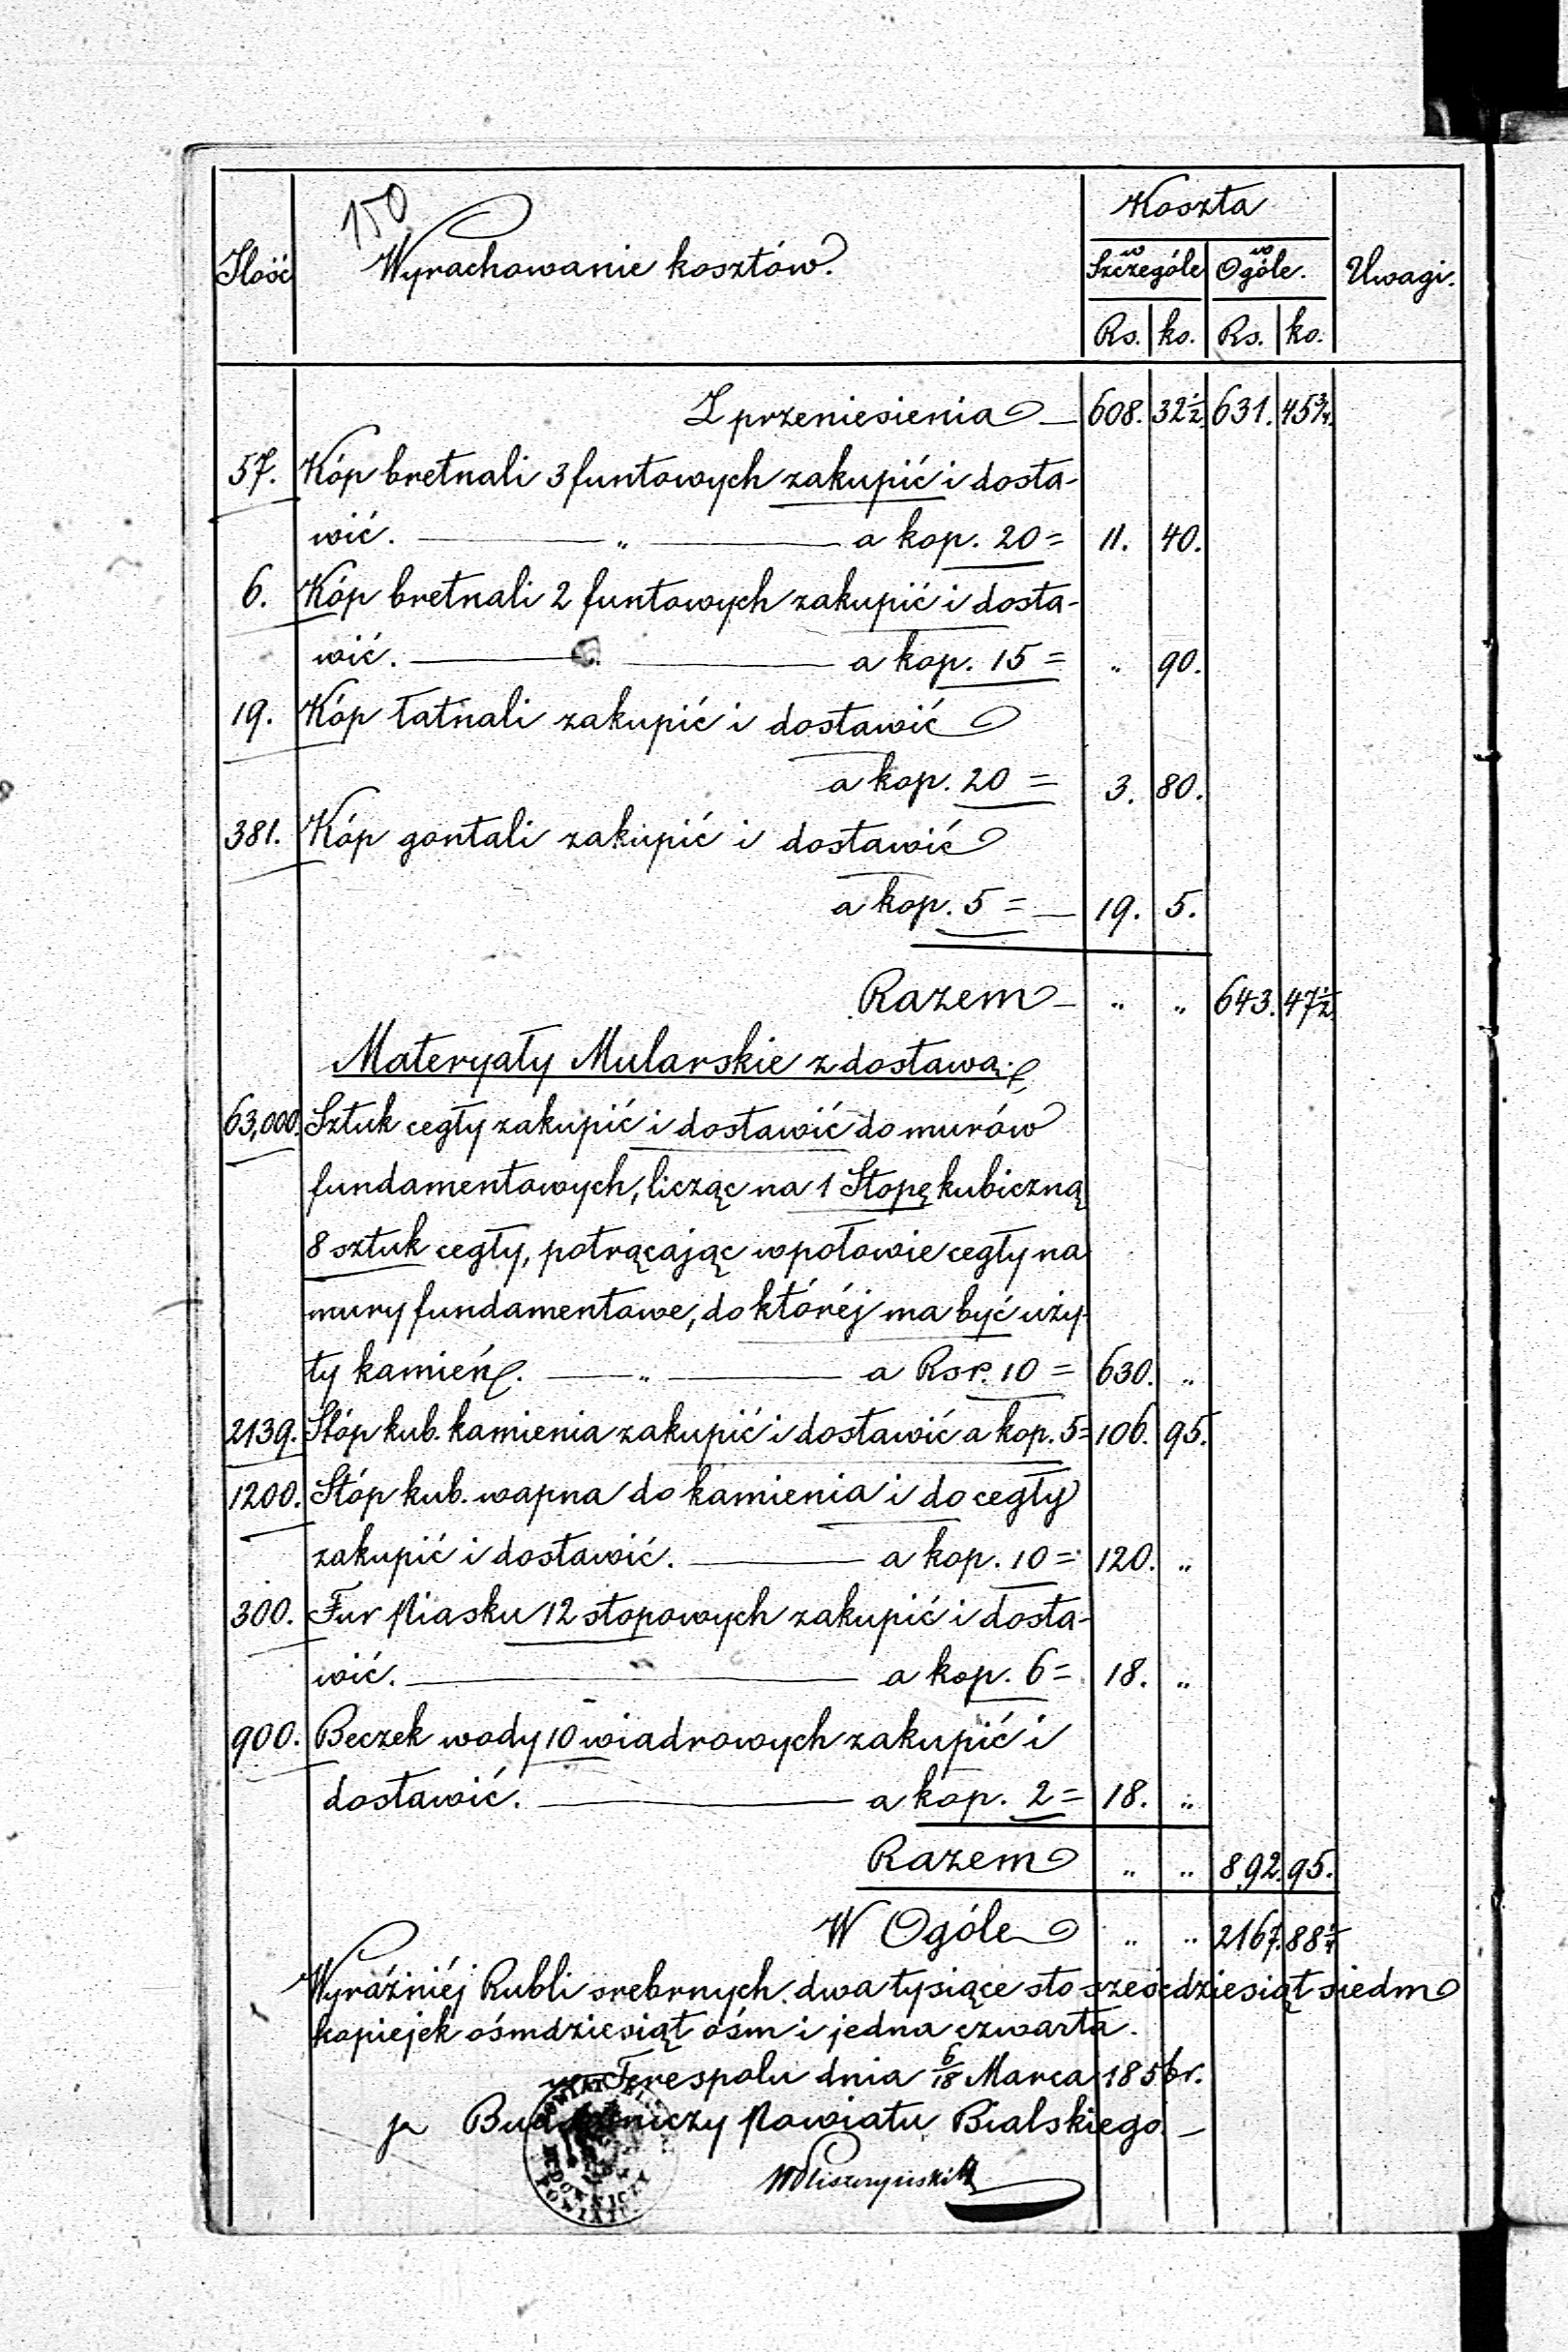 150
Ilość Wyrachowanie kosztów. Koszta Uwagi.
w Szczególe w Ogóle.
Rs. ko. Rs. ko.
Z przeniesienia — 608. 32½ 631. 45¾.
57. Kóp bretnali 3 funtowych zakupić i dosta-
wić. — „ — a kop. 20 = 11. 40.
6. Kóp bretnali 2 funtowych zakupić i dosta-
wić. — a kop. 15 = „ 90.
19. Kóp łatnali zakupić i dostawić
a kop. 20 = 3. 80.
381. Kóp gontali zakupić i dostawić
a kop. 5 = — 19. 5.
Razem — „ „ 643. 47½
Materyały Mularskie z dostawą.
63,000. Sztuk cegły zakupić i dostawić do murów
fundamentowych, licząc na 1 Stopę kubiczną
8 sztuk cegły, potrącając w połowie cegły na
mury fundamentowe, do któréj ma być uży-
ty kamień. — „ — a Rsr. 10 = 630. „
2139. Stóp kub. kamienia zakupić i dostawić a kop. 5 = 106. 95.
1200. Stóp kub. wapna do kamienia i do cegły
zakupić i dostawić. — a kop. 10 = 120. „
300. Fur Piasku 12 stopowych zakupić i dosta-
wić. — a kop. 6 = 18. „
900. Beczek wody 10 wiadrowych zakupić i
dostawić. — a kop. 2 = 18. „
Razem „ „ 892. 95.
W Ogóle „ „ 2167. 88¼
Wyraźniéj Rubli srebrnych dwa tysiące sto sześćdziesiąt siedm
kopiejek ośmdziesiąt ośm i jedna czwarta.
w Terespolu dnia 6/18 Marca 1856 r.
Budowniczy Powiatu Bialskiego. —